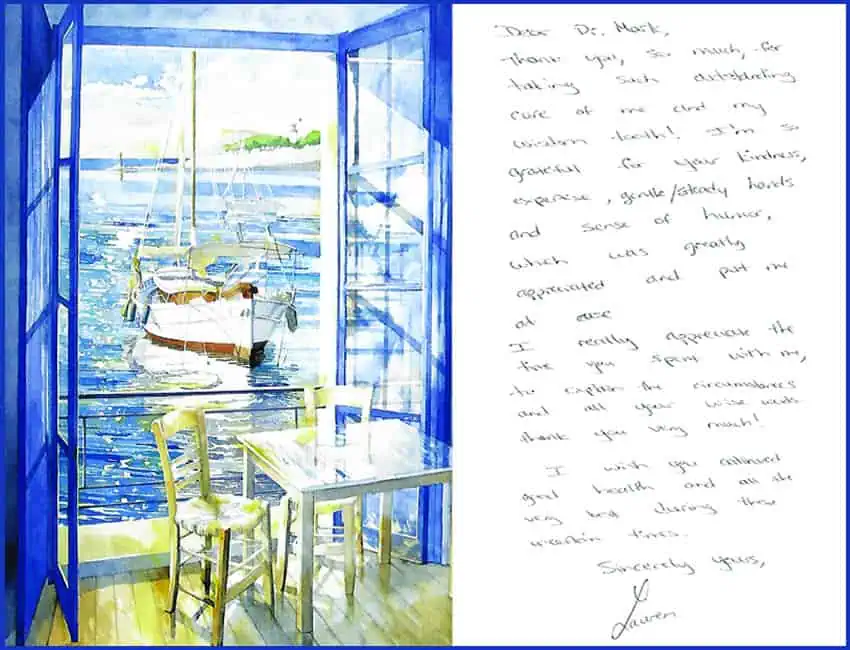 Dear Dr. Mark,
Thank you, so much, for
taking such outstanding
care of me and my
wisdom teeth! I'm so
grateful for your kindness,
expertise, gentle/steady hands
and sense of humor,
which was greatly
appreciated and put me
at ease
I really appreciate the
time you spent with me,
to explain the circumstances
and all your wise words
thank you very much!
I wish you continued
good health and all the
very best during these
uncertain times.
Sincerely yours,
Lauren